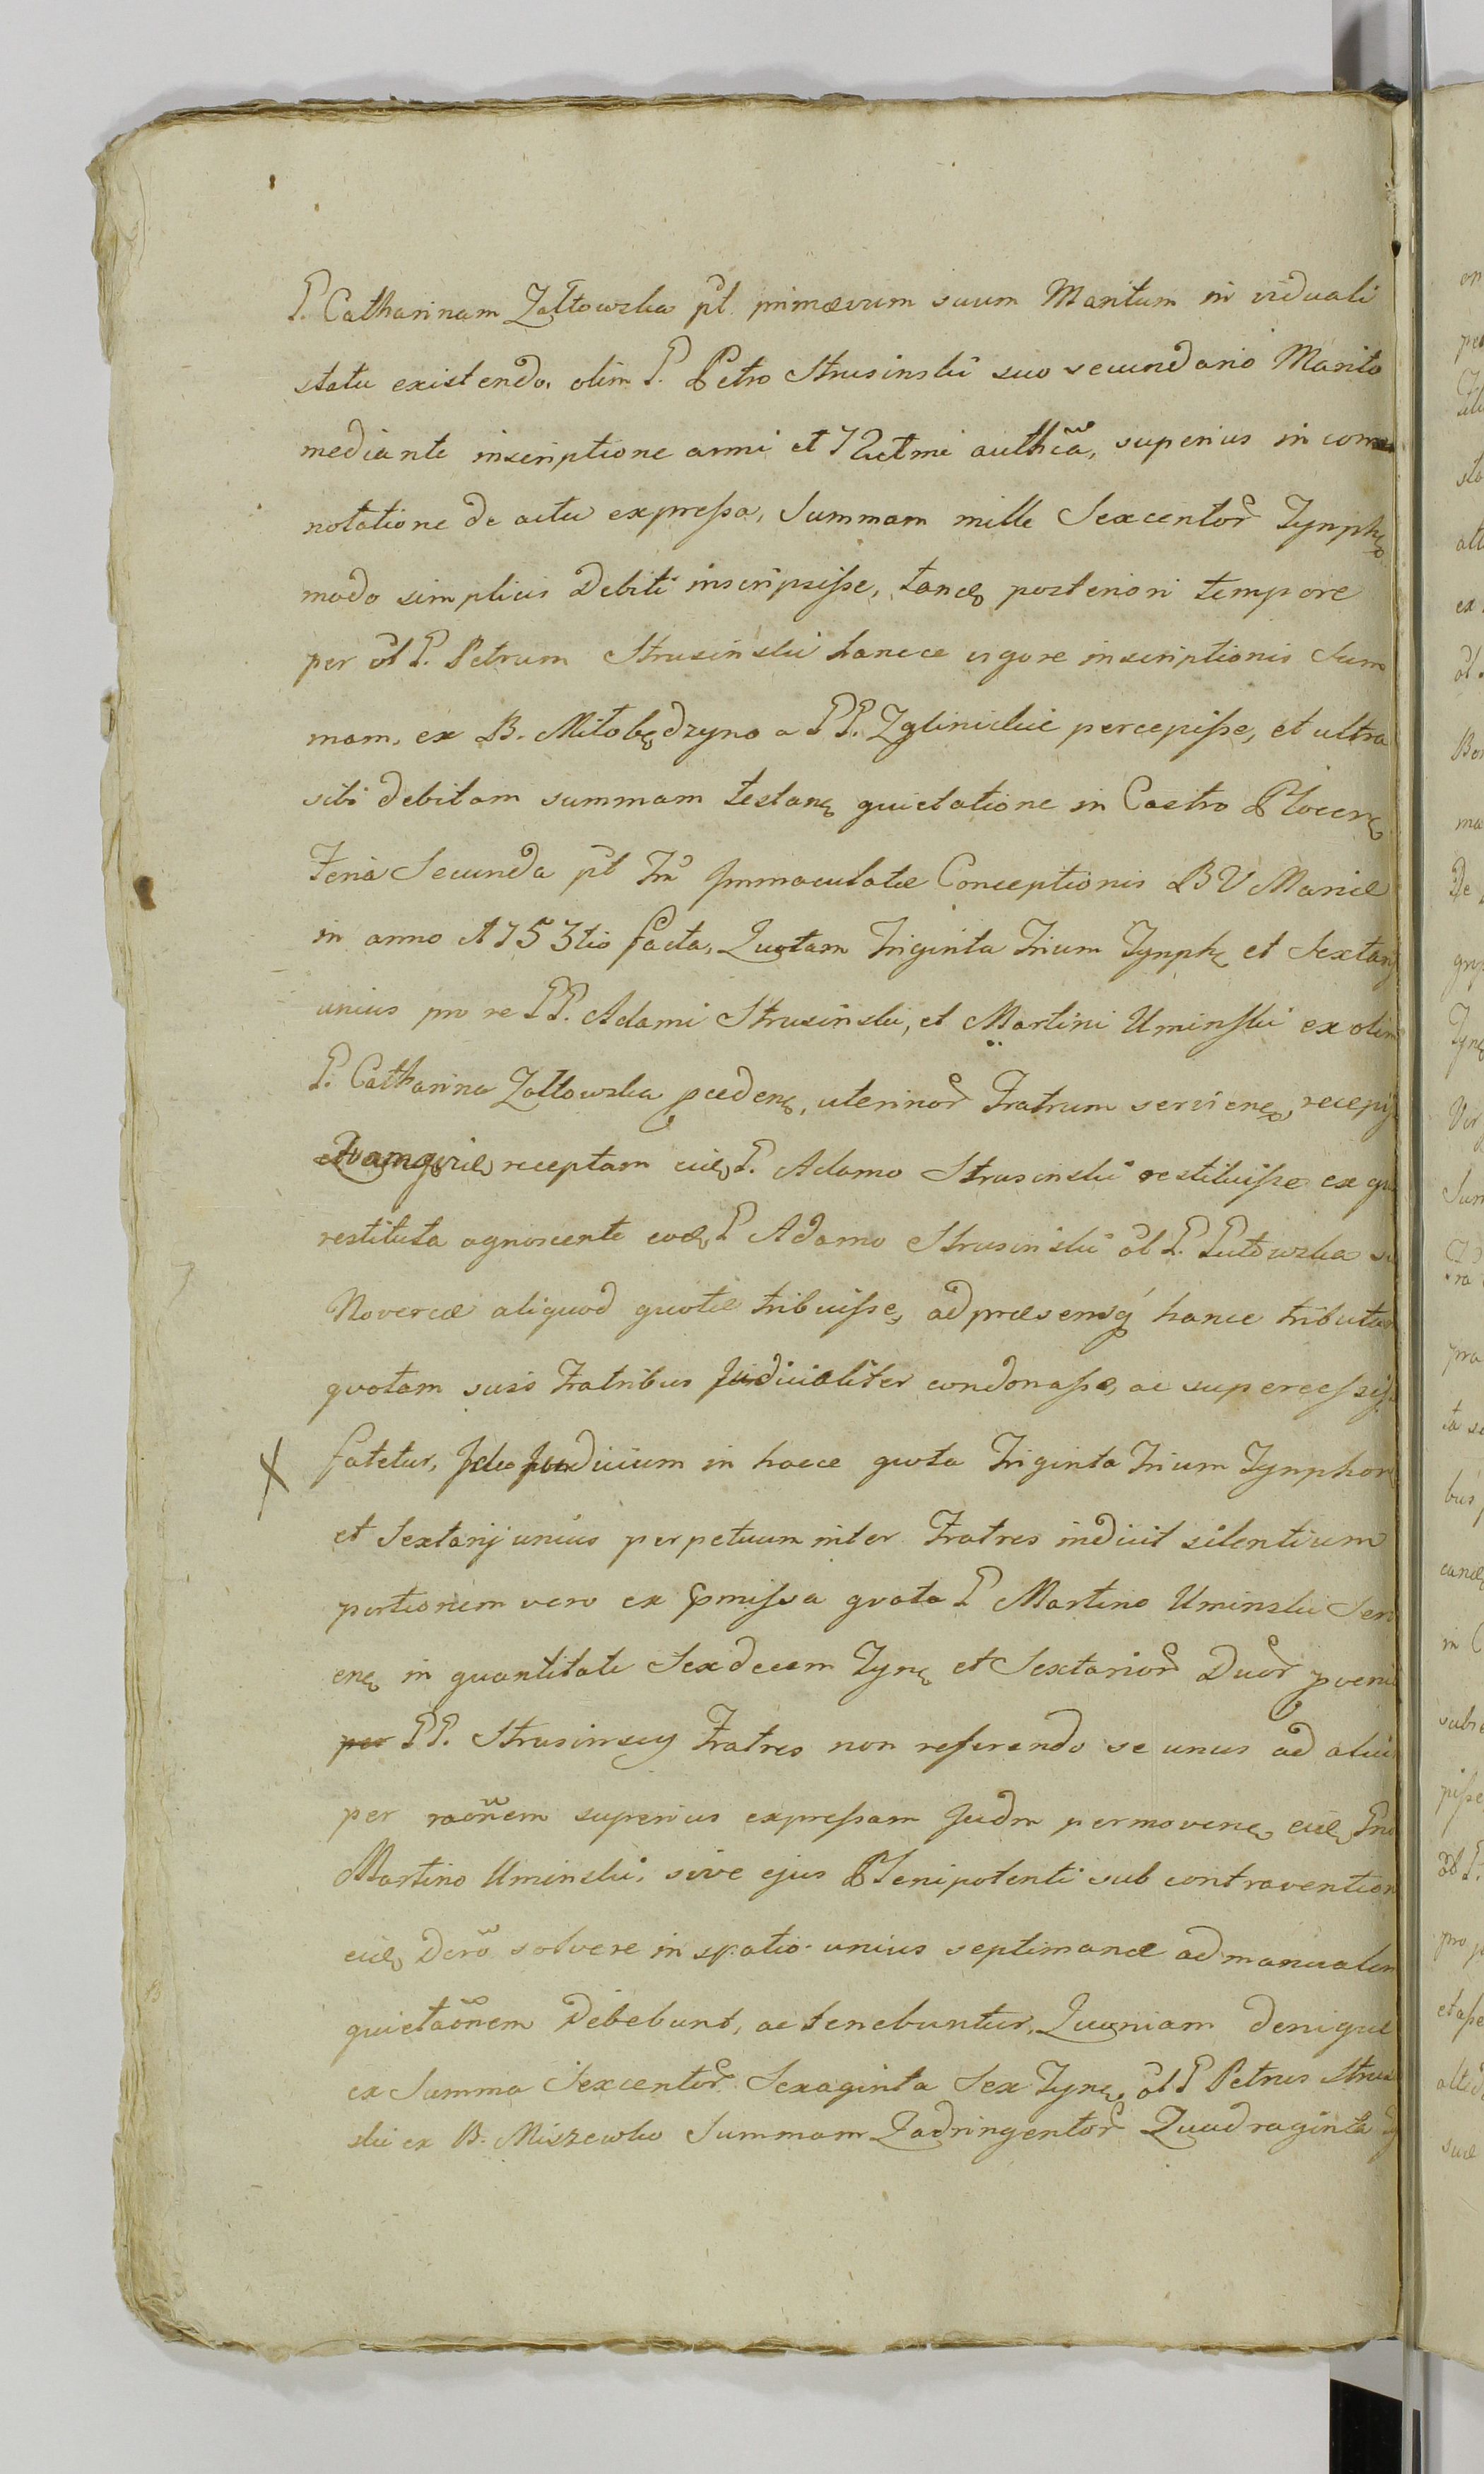 P. Catharinam Zołtowska pt primævum suum Maritum in viduali
statu existendo, olim P. Petro Strusinski suo secundario Marito
mediante inscriptione anni et authca, superius in con
notatione de actu expressa, Summam mille Sexcentor Tymph
modo simplicis Debiti inscripsisse, tanđ posteriori tempore
per ol P. Petrum Strusinski hancce vigore inscriptionis Sum
mam, ex B. Miłobędzyno a PP. Zglinickie percepisse, et ultra
sibi debitam summam testan quietatione in Castro Plocen
Feria Secunda pt Fm Immaculatæ Conceptionis BV Mariæ
in anno 1753tio facta, Quotam Triginta Trium Tymph et Sextarij
unius pro re PP. Adami Strusinski, et Martini Uminski ex olim
P. Catharina Zołtowska peden, uterinor Fratrum servien, recepis
receptam eid P. Adamo Strusinski restituisse ex qua
restituta agnoscente eod P Adamo Strusinski ol P. Putowska su
Novercæ aliquod quotæ tribuisse, ad præsensq hance tributam
quotam suis Fratribus Judicialiter condonasse, ac supercessisse
X fatetur, Ideo Judicium in hacce quota Triginta Trium Tymphor
et Sextarij unius perpetuum inter Fratres indicit silentium
portionem vero ex pmissa quota P Martino Uminski Serv
en in quantitate Sexdecem Tyn et Sextarior Duor pveni
per PP. Strusinscy Fratres non referendo se unus ad aliu
per raonem superius expressam Judm permoven eid Pno
Martino Uminski, sive ejus Plenipotenti sub contravention
eid Dero solvere in spatio unius septimanæ ad manualem
quietaonem Debebunt, ac tenebuntur, Quoniam denique
ex Summa Sexcentor Sexaginta Sex Tyn, ol P Petrus Strusin
ski ex B. Miszewko Summam Qadringentor Quadraginta